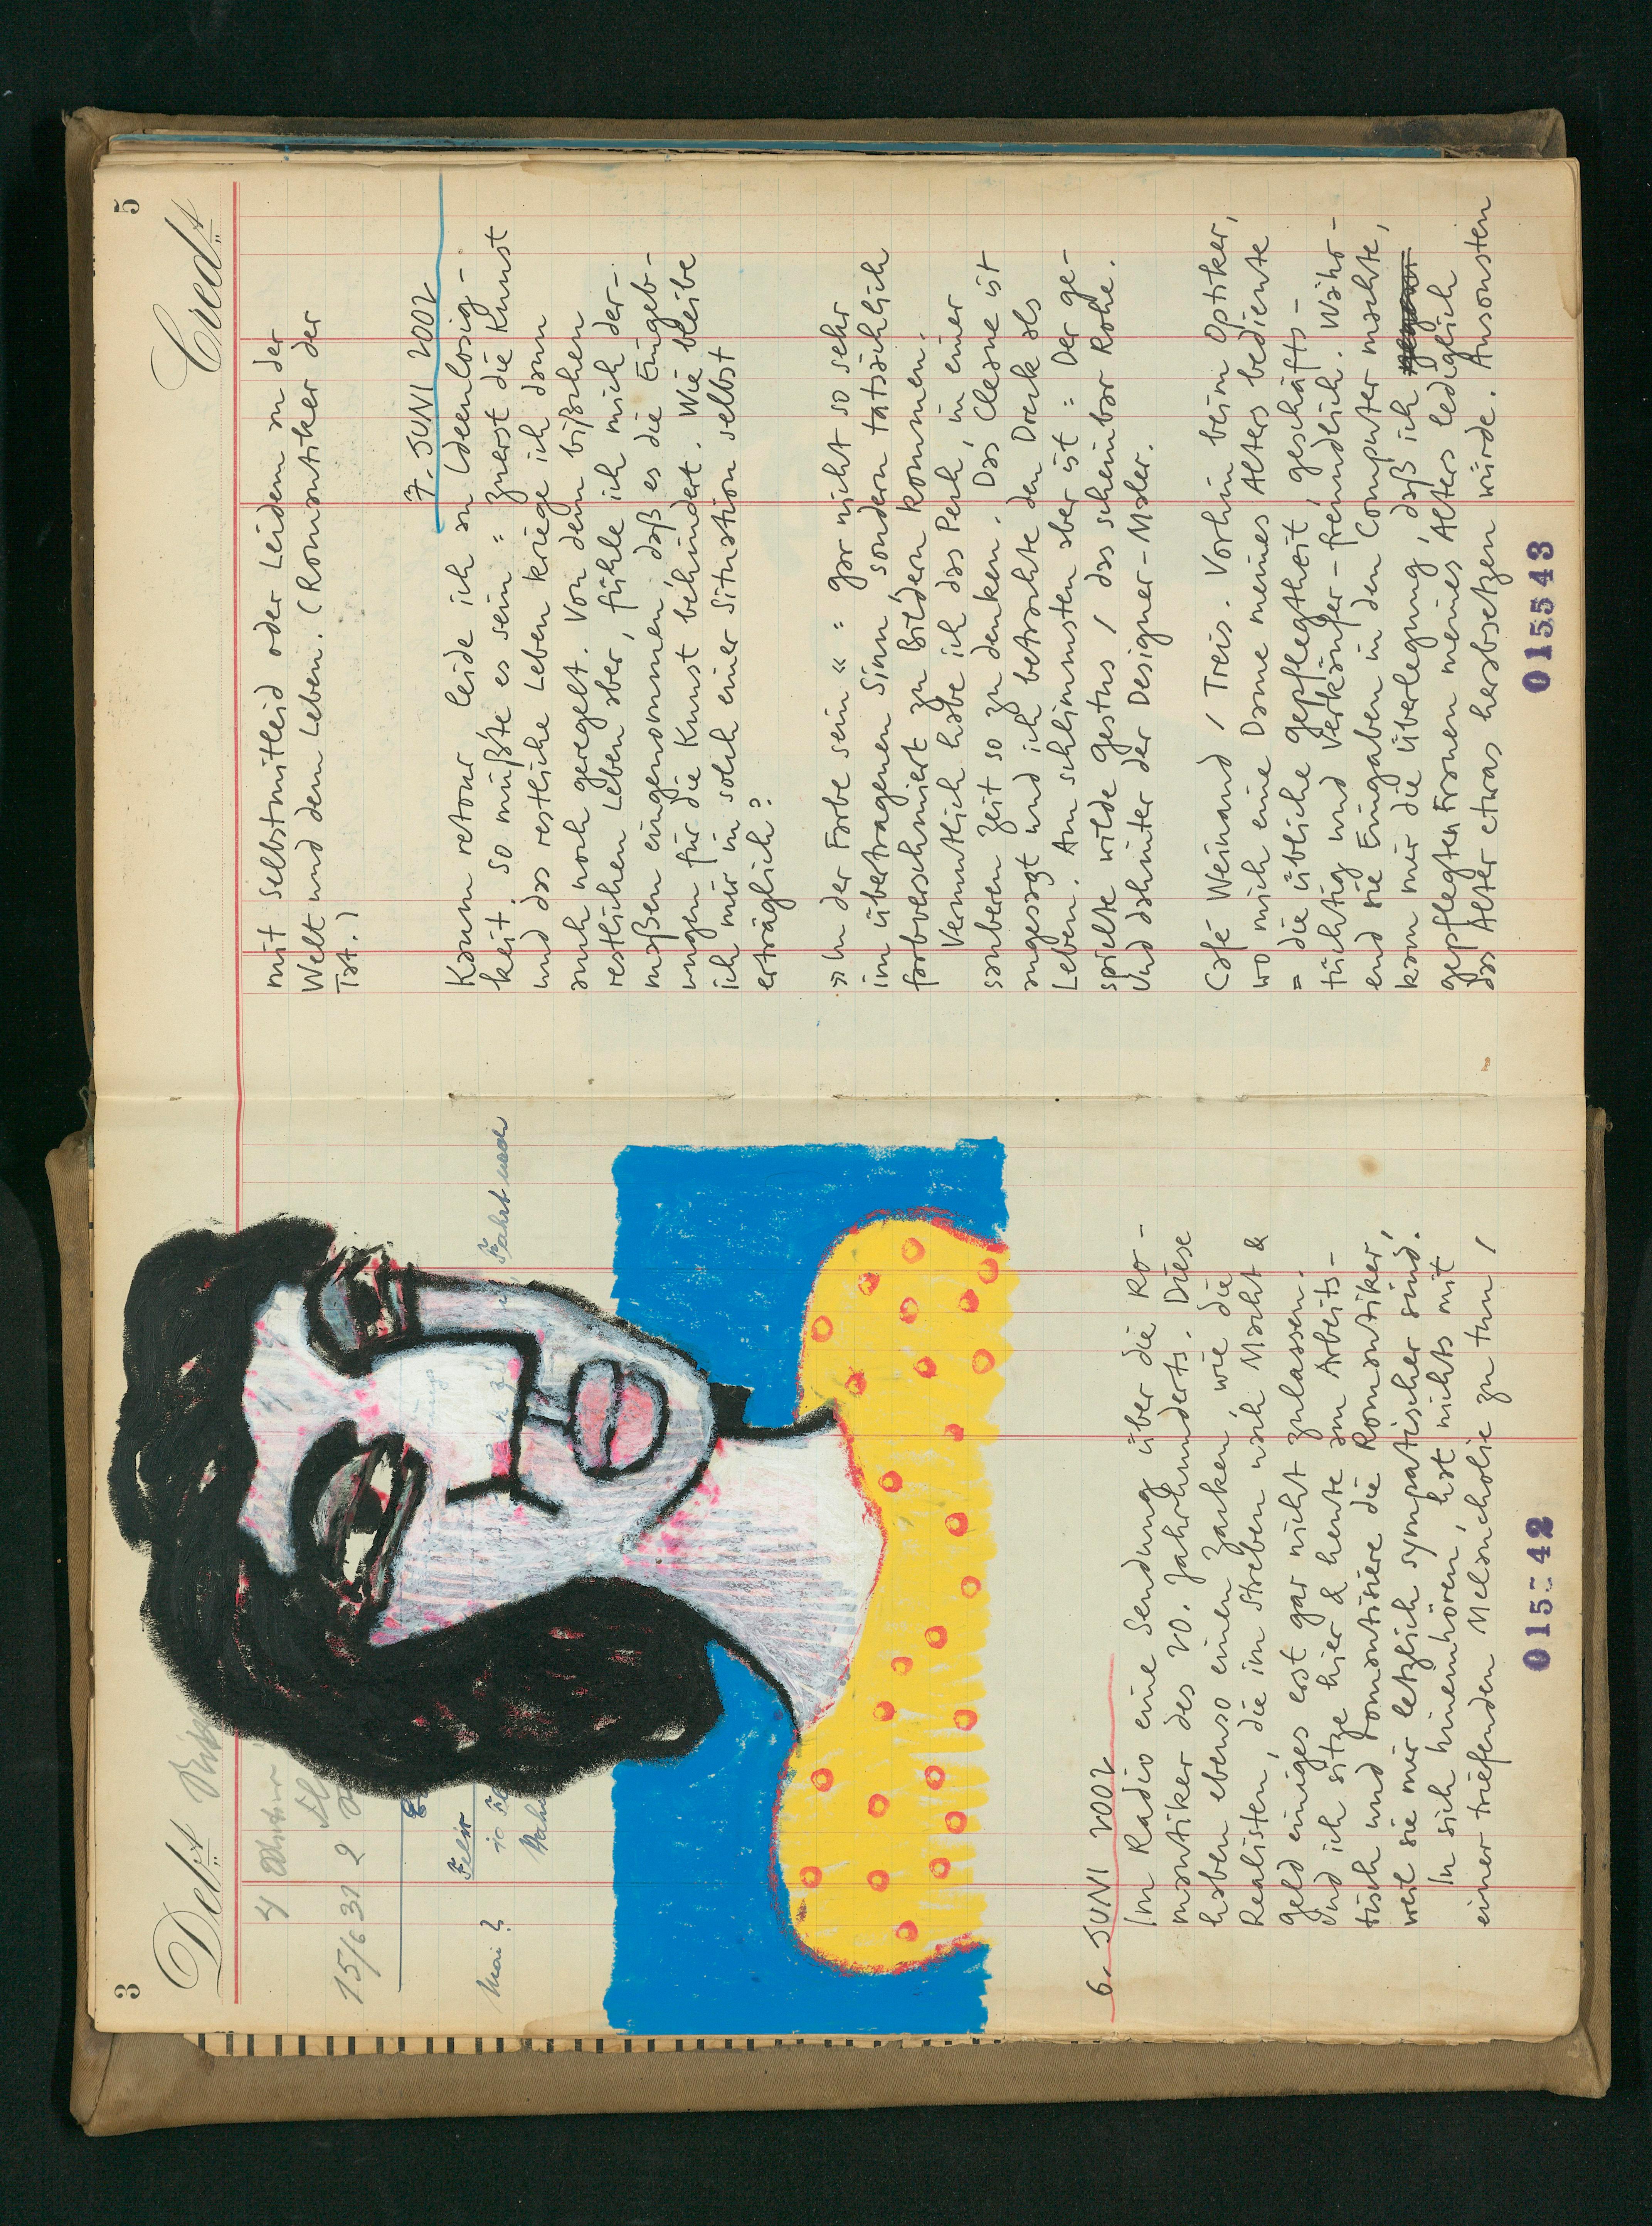 3
Debt
4)
15/6 31 2
Felix
Mai ?
Fahrt nach
6. JUNI 2002
Im Radio eine Sendung über die Ro-
mantiker des 20. Jahrhunderts. Diese
haben ebenso einen Zacken, wie die
Realisten, die im Streben nach Macht &
Geld einiges erst gar nicht zulassen.
Und ich sitze hier & heute am Arbeits-
tisch und romantisiere die Romantiker,
weil sie mir letzlich sympatischer sind.
In sich hineinhören, hat nichts mit
einer triefenden Melancholie zu tun /
015542
5
Credt
mit Selbstmitleid oder Leiden an der
Welt und dem Leben. (Romantiker der
Tat.)
7. JUNI 2002
Kaum retour leide ich an Ideenlosig-
keit. So müßte es sein = zuerst die Kunst
und das restliche Leben kriege ich dann
auch noch geregelt. Von dem bißchen
restlichen Leben aber, fühle ich mich der-
maßen eingenommen, daß es die Eingeb-
ungen für die Kunst behindert. Wie bleibe
ich mir in solch einer Situation selbst
erträglich?
»In der Farbe sein« = gar nicht so sehr
im übertragenen Sinn, sondern tatsächlich
farbverschmiert zu Bildern kommen.
Vermutlich habe ich das Pech, in einer
sauberen Zeit so zu denken. Das Cleane ist
angesagt und ich betrachte den Dreck als
Leben. Am schlimmsten aber ist = Der ge-
spielte wilde Gestus / das scheinbar Rohe.
Und dahinter der Designer-Maler.
Café Weinand / Treis. Vorhin beim Optiker,
wo mich eine Dame meines Alters bediente
= die übliche Gepflegtheit, geschäfts-
tüchtig und Verkäufer-freundlich. Währ-
end sie Eingaben in den Computer machte,
kam mir die Überlegung, daß ich
gepflegten Frauen meines Alters lediglich
das Alter etwas herabsetzen würde. Ansonsten
015543